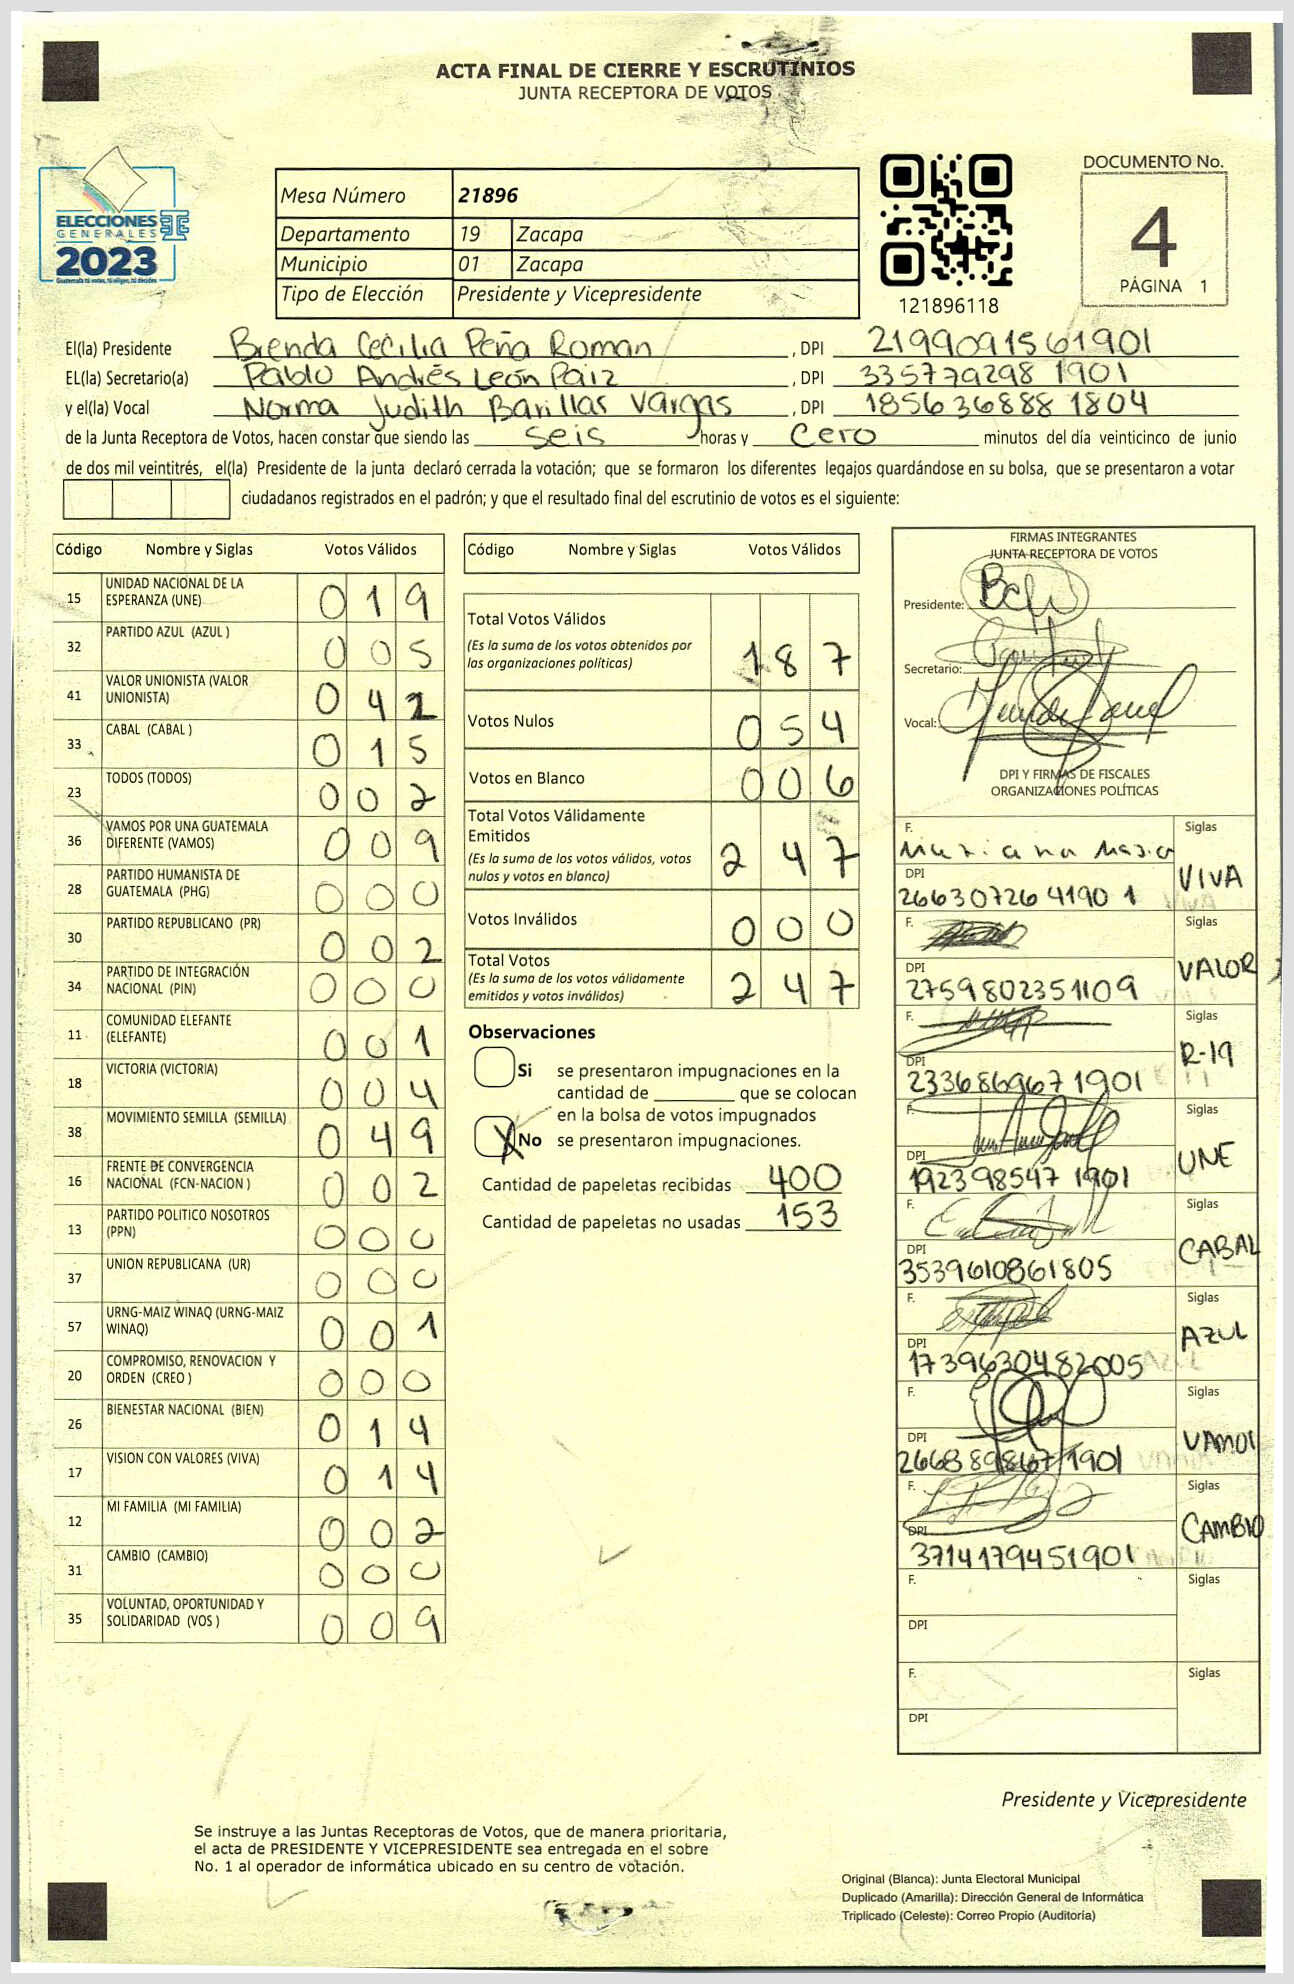 ACTA FINAL DE CIERRE Y ESCRUTINIOS
JUNTA RECEPTORA DE VOTOS
ELECCIONES
GENERALES
2023
Guatemala tú votas, tú eliges, tú decides
Mesa Número 21896
Departamento 19 Zacapa
Municipio 01 Zacapa
Tipo de Elección Presidente y Vicepresidente
121896118
DOCUMENTO No.
4
PÁGINA 1
El(la) Presidente Brenda Cecilia Peña Roman , DPI 2199091561901
EL(la) Secretario(a) Pablo Andrés León Paiz , DPI 335779298 1901
y el(la) Vocal Norma Judith Barillas Vargas , DPI 185636888 1804
de la Junta Receptora de Votos, hacen constar que siendo las seis horas y cero minutos del día veinticinco de junio
de dos mil veintitrés, el(la) Presidente de la junta declaró cerrada la votación; que se formaron los diferentes legajos guardándose en su bolsa, que se presentaron a votar
ciudadanos registrados en el padrón; y que el resultado final del escrutinio de votos es el siguiente:
Código Nombre y Siglas Votos Válidos
15 UNIDAD NACIONAL DE LA ESPERANZA (UNE) 0 1 9
32 PARTIDO AZUL (AZUL ) 0 0 5
41 VALOR UNIONISTA (VALOR UNIONISTA) 0 4 2
33 CABAL (CABAL ) 0 1 5
23 TODOS (TODOS) 0 0 2
36 VAMOS POR UNA GUATEMALA DIFERENTE (VAMOS) 0 0 9
28 PARTIDO HUMANISTA DE GUATEMALA (PHG) 0 0 0
30 PARTIDO REPUBLICANO (PR) 0 0 2
34 PARTIDO DE INTEGRACIÓN NACIONAL (PIN) 0 0 0
11 COMUNIDAD ELEFANTE (ELEFANTE) 0 0 1
18 VICTORIA (VICTORIA) 0 0 4
38 MOVIMIENTO SEMILLA (SEMILLA) 0 4 9
16 FRENTE DE CONVERGENCIA NACIONAL (FCN-NACION ) 0 0 2
13 PARTIDO POLITICO NOSOTROS (PPN) 0 0 0
37 UNION REPUBLICANA (UR) 0 0 0
57 URNG-MAIZ WINAQ (URNG-MAIZ WINAQ) 0 0 1
20 COMPROMISO, RENOVACION Y ORDEN (CREO ) 0 0 0
26 BIENESTAR NACIONAL (BIEN) 0 1 4
17 VISION CON VALORES (VIVA) 0 1 4
12 MI FAMILIA (MI FAMILIA) 0 0 2
31 CAMBIO (CAMBIO) 0 0 0
35 VOLUNTAD, OPORTUNIDAD Y SOLIDARIDAD (VOS ) 0 0 9
Código Nombre y Siglas Votos Válidos
Total Votos Válidos
(Es la suma de los votos obtenidos por
las organizaciones políticas) 1 8 7
Votos Nulos 0 5 4
Votos en Blanco 0 0 6
Total Votos Válidamente
Emitidos
(Es la suma de los votos válidos, votos
nulos y votos en blanco) 2 4 7
Votos Inválidos 0 0 0
Total Votos
(Es la suma de los votos válidamente
emitidos y votos inválidos) 2 4 7
Observaciones
Si se presentaron impugnaciones en la
cantidad de ________ que se colocan
en la bolsa de votos impugnados
X No se presentaron impugnaciones.
Cantidad de papeletas recibidas 400
Cantidad de papeletas no usadas 153
FIRMAS INTEGRANTES
JUNTA RECEPTORA DE VOTOS
Presidente:
Secretario:
Vocal:
DPI Y FIRMAS DE FISCALES
ORGANIZACIONES POLÍTICAS
F. Siglas
VIVA
DPI
266307264190 1
F. Siglas
VALOR
DPI
2759802351109
F. Siglas
R-19
DPI
233686967 1901
F. Siglas
UNE
DPI
192398547 1901
F. Siglas
CABAL
DPI
3539610861805
F. Siglas
AZUL
DPI
1739630482005
F. Siglas
VAMOS
DPI
266889867 1901
F. Siglas
CAMBIO
DPI
3714179451901
F. Siglas
DPI
F. Siglas
DPI
Presidente y Vicepresidente
Se instruye a las Juntas Receptoras de Votos, que de manera prioritaria,
el acta de PRESIDENTE Y VICEPRESIDENTE sea entregada en el sobre
No. 1 al operador de informática ubicado en su centro de votación.
Original (Blanca): Junta Electoral Municipal
Duplicado (Amarilla): Dirección General de Informática
Triplicado (Celeste): Correo Propio (Auditoría)